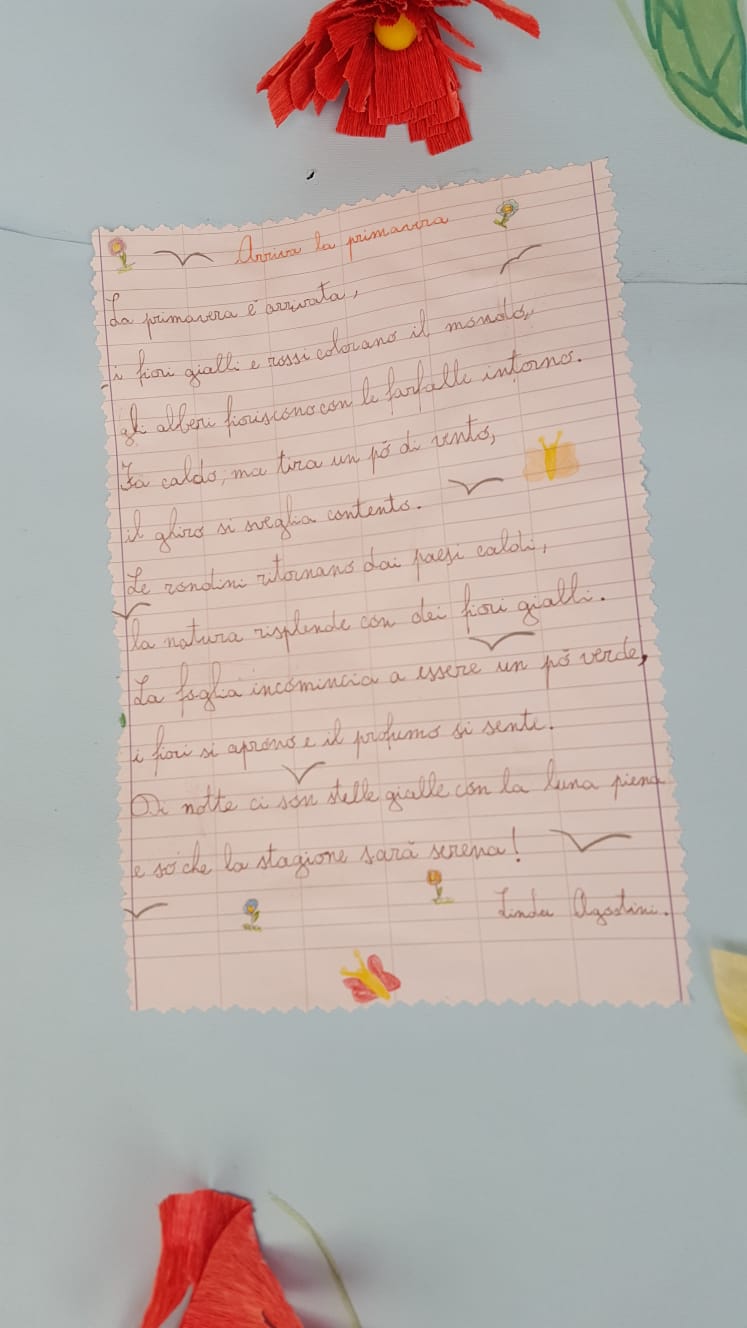 Arriva la primavera
La primavera è arrivata,
i fiori gialli e rossi colorano il mondo,
gli alberi fioriscono con le farfalle intorno.
Fa caldo, ma tira un pó di vento,
il ghiro si sveglia contento.
Le rondini ritornano dai paesi caldi,
la natura risplende con dei fiori gialli.
La foglia incomincia a essere un pó verde,
i fiori si aprono e il profumo si sente.
Di notte ci son stelle gialle con la luna piena
e so che la stagione sarà serena!
Linda Agostini.